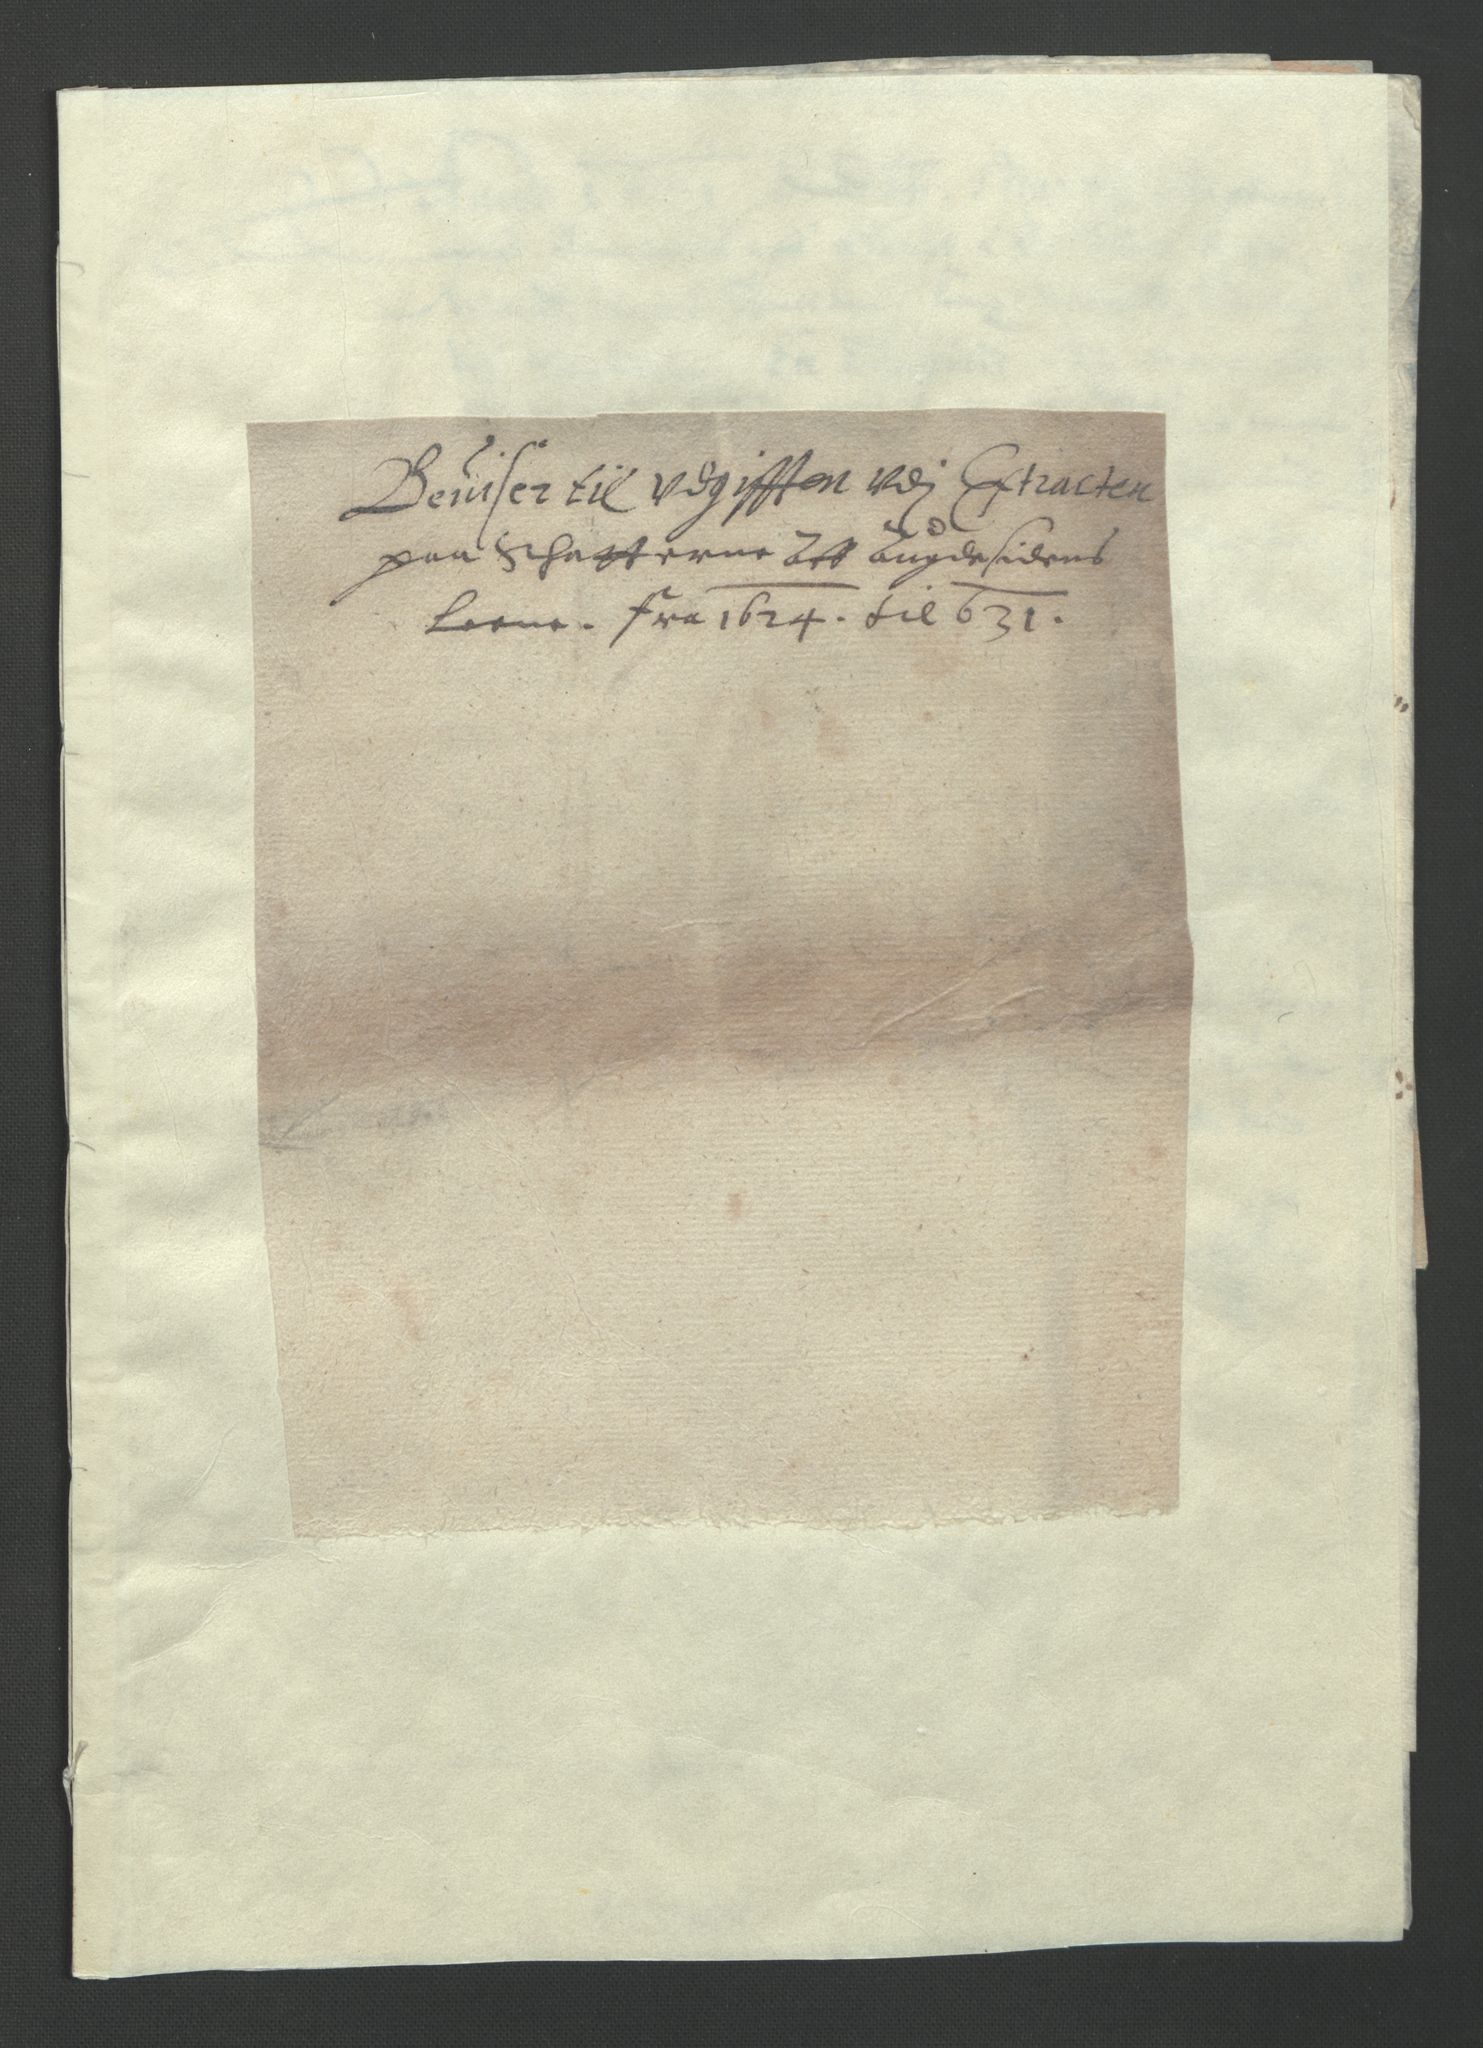 Beuiser til vdgifften vdj Extracten
paa Schatterne Aff Bugdesidens
Leene. fra 1624. til 631.